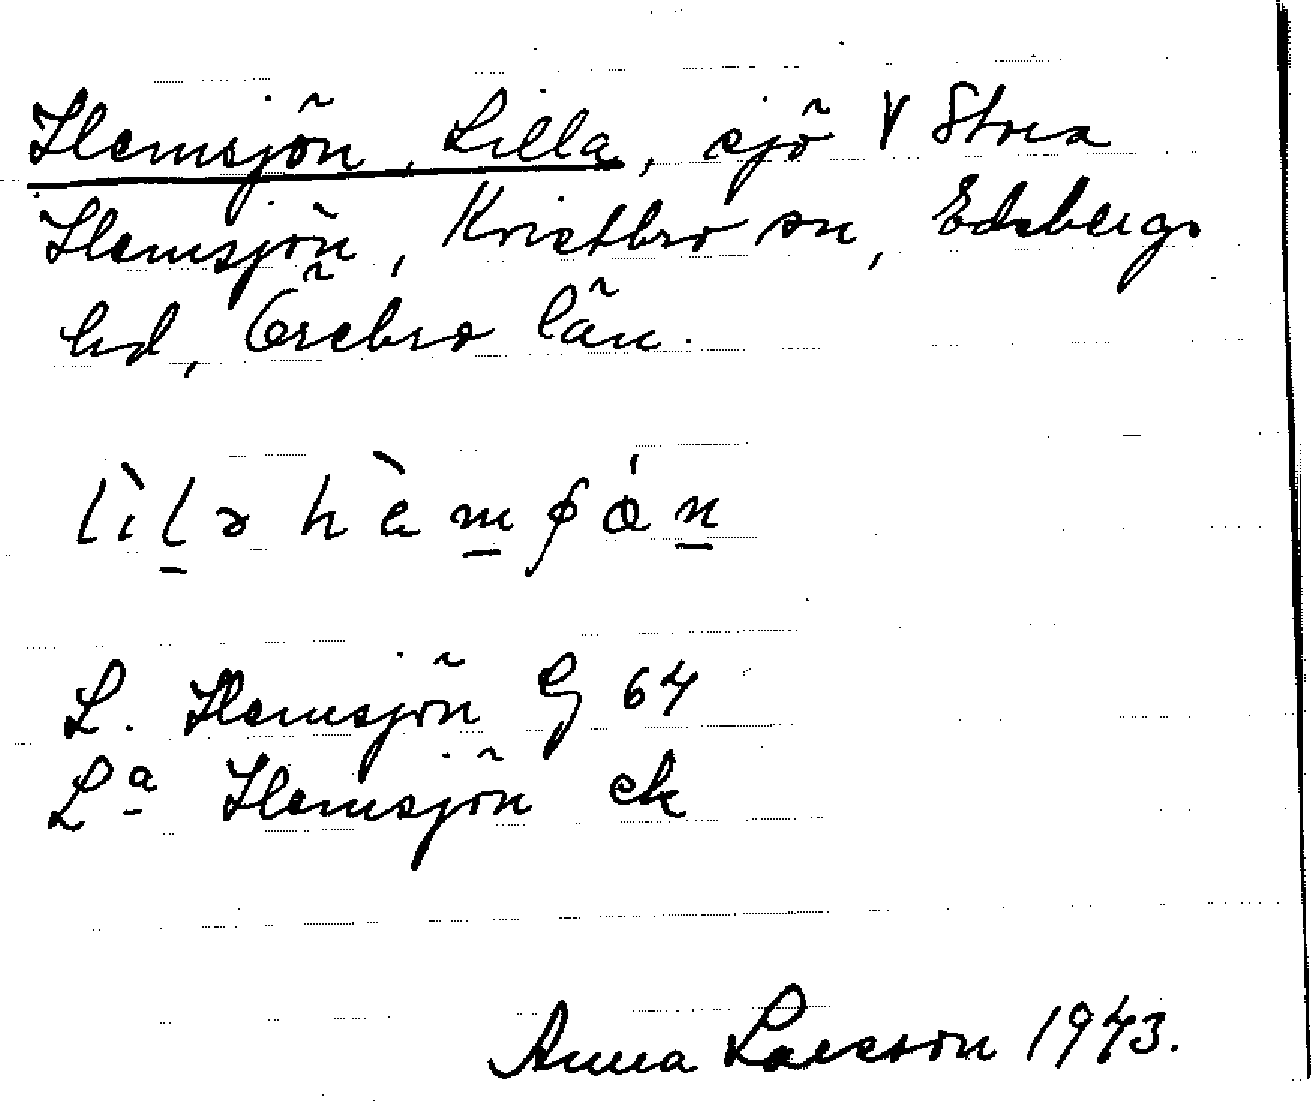 Hemsjön, Lilla, sjö V Stora
Hemsjön, Kvistbro sn, Edsbergs
hd, Örebro län.
lìlə hèmʃón
L. Hemsjön G 64
Lª Hemsjön ek
Anna Larsson 1943.